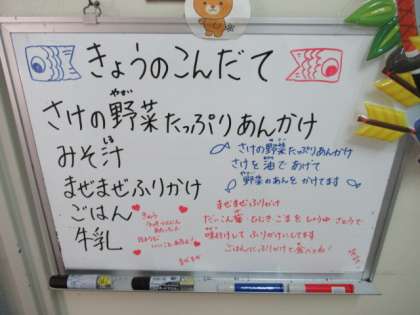 きょうのこんだて
さけの野菜たっぷりあんかけ
やさい
みそ汁
しる
まぜまぜふりかけ
ごはん
牛乳
さけの野菜たっぷりあんかけ
さけを油であげて
野菜のあんをかけてます
まぜまぜふりかけ
だいこん葉 ひじき ごまを しょうゆ さとうで
味付けして ふりかけにしてます
ごはんにふりかけて食べてね!
きょう